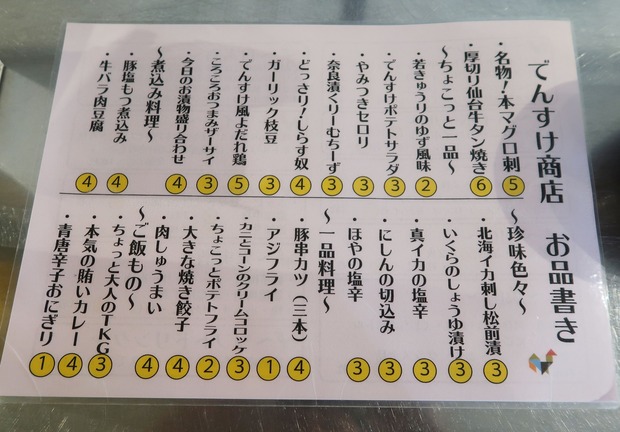 でんすけ商店 お品書き
・名物!本マグロ刺 5
・厚切り仙台牛タン焼き 6
〜ちょこっと一品〜
・若きゅうりのゆず風味 2
・でんすけポテトサラダ 3
・やみつきセロリ 3
・奈良漬くりーむちーず 3
・どっさり!しらす奴 4
・ガーリック枝豆 3
・でんすけ風よだれ鶏 5
・ころころおつまみザーサイ 3
・今日のお漬物盛り合わせ 4
〜煮込み料理〜
・豚塩もつ煮込み 4
・牛バラ肉豆腐 4
〜珍味色々〜
・北海イカ刺し松前漬 3
・いくらのしょうゆ漬け 3
・真イカの塩辛 3
・にしんの切込み 3
・ほやの塩辛 3
〜一品料理〜
・豚串カツ(三本) 4
・アジフライ 1
・カニとコーンのクリームコロッケ 3
・ちょこっとポテトフライ 2
・大きな焼き餃子 4
・肉しゅうまい 4
〜ご飯もの〜
・ちょっと大人のTKG 3
・本気の賄いカレー 4
・青唐辛子おにぎり 1